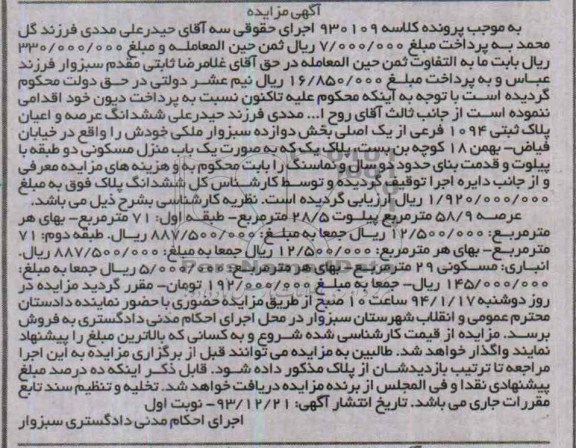 آگهی مزایده
به موجب پرونده کلاسه ۹۳۰۱۰۹ اجرای حقوقی سه آقای حیدرعلی مددی فرزند گل
محمد به پرداخت مبلغ ۷/۰۰۰/۰۰۰ ریال ثمن حین المعامله و مبلغ ۳۳۰/۰۰۰/۰۰۰
ریال بابت ما به التفاوت ثمن حین المعامله در حق آقای غلامرضا ثابتی مقدم سبزوار فرزند
عباس و به پرداخت مبلغ ۱۶/۸۵۰/۰۰۰ ریال نیم عشر دولتی در حق دولت محکوم
گردیده است با توجه به اینکه محکوم علیه تاکنون نسبت به پرداخت دیون خود اقدامی
ننموده است از جانب ثالث آقای روح ا... مددی فرزند حیدرعلی ششدانگ عرصه و اعیان
پلاک ثبتی ۱۰۹۴ فرعی از یک اصلی بخش دوازده سبزوار ملکی خودش را واقع در خیابان
فیاض- بهمن ۱۸ کوچه بن بست، پلاک یک که به صورت یک باب منزل مسکونی دو طبقه با
پیلوت و قدمت بنای حدود ده سال و نماسنگ را بابت محکوم به و هزینه های مزایده معرفی
و از جانب دایره اجرا توقیف گردیده و توسط کارشناس کل ششدانگ پلاک فوق به مبلغ
۱/۹۲۰/۰۰۰/۰۰۰ ریال ارزیابی گردیده است. نظریه کارشناسی بشرح ذیل می باشد.
عرصه ۵۸/۹ مترمربع پیلوت ۲۸/۵ مترمربع- طبقه اول: ۷۱ مترمربع- بهای هر
مترمربع: ۱۲/۵۰۰/۰۰۰ ریال جمعا به مبلغ: ۸۸۷/۵۰۰/۰۰۰ ریال. طبقه دوم: ۷۱
مترمربع- بهای هر مترمربع: ۱۲/۵۰۰/۰۰۰ ریال جمعا به مبلغ: ۸۸۷/۵۰۰/۰۰۰ ریال.
انباری: مسکونی ۲۹ مترمربع- بهای هر مترمربع: ۵/۰۰۰/۰۰۰ ریال جمعا به مبلغ:
۱۴۵/۰۰۰/۰۰۰ ریال- جمعا به مبلغ ۱۹۲/۰۰۰/۰۰۰ تومان- مقرر گردید مزایده در
روز دوشنبه ۹۴/۱/۱۷ ساعت ۱۰ صبح از طریق مزایده حضوری با حضور نماینده دادستان
محترم عمومی و انقلاب شهرستان سبزوار در محل اجرای احکام مدنی دادگستری به فروش
برسد. مزایده از قیمت کارشناسی شده شروع و به کسانی که بالاترین مبلغ را پیشنهاد
نمایند واگذار خواهد شد. طالبین به مزایده می توانند قبل از برگزاری مزایده به این اجرا
مراجعه تا ترتیب بازدیدشان از پلاک مذکور داده شود. قابل ذکر اینکه ده درصد مبلغ
پیشنهادی نقدا و فی المجلس از برنده مزایده دریافت خواهد شد. تخلیه و تنظیم سند تابع
مقررات جاری می باشد. تاریخ انتشار آگهی: ۹۳/۱۲/۲۱- نوبت اول
اجرای احکام مدنی دادگستری سبزوار